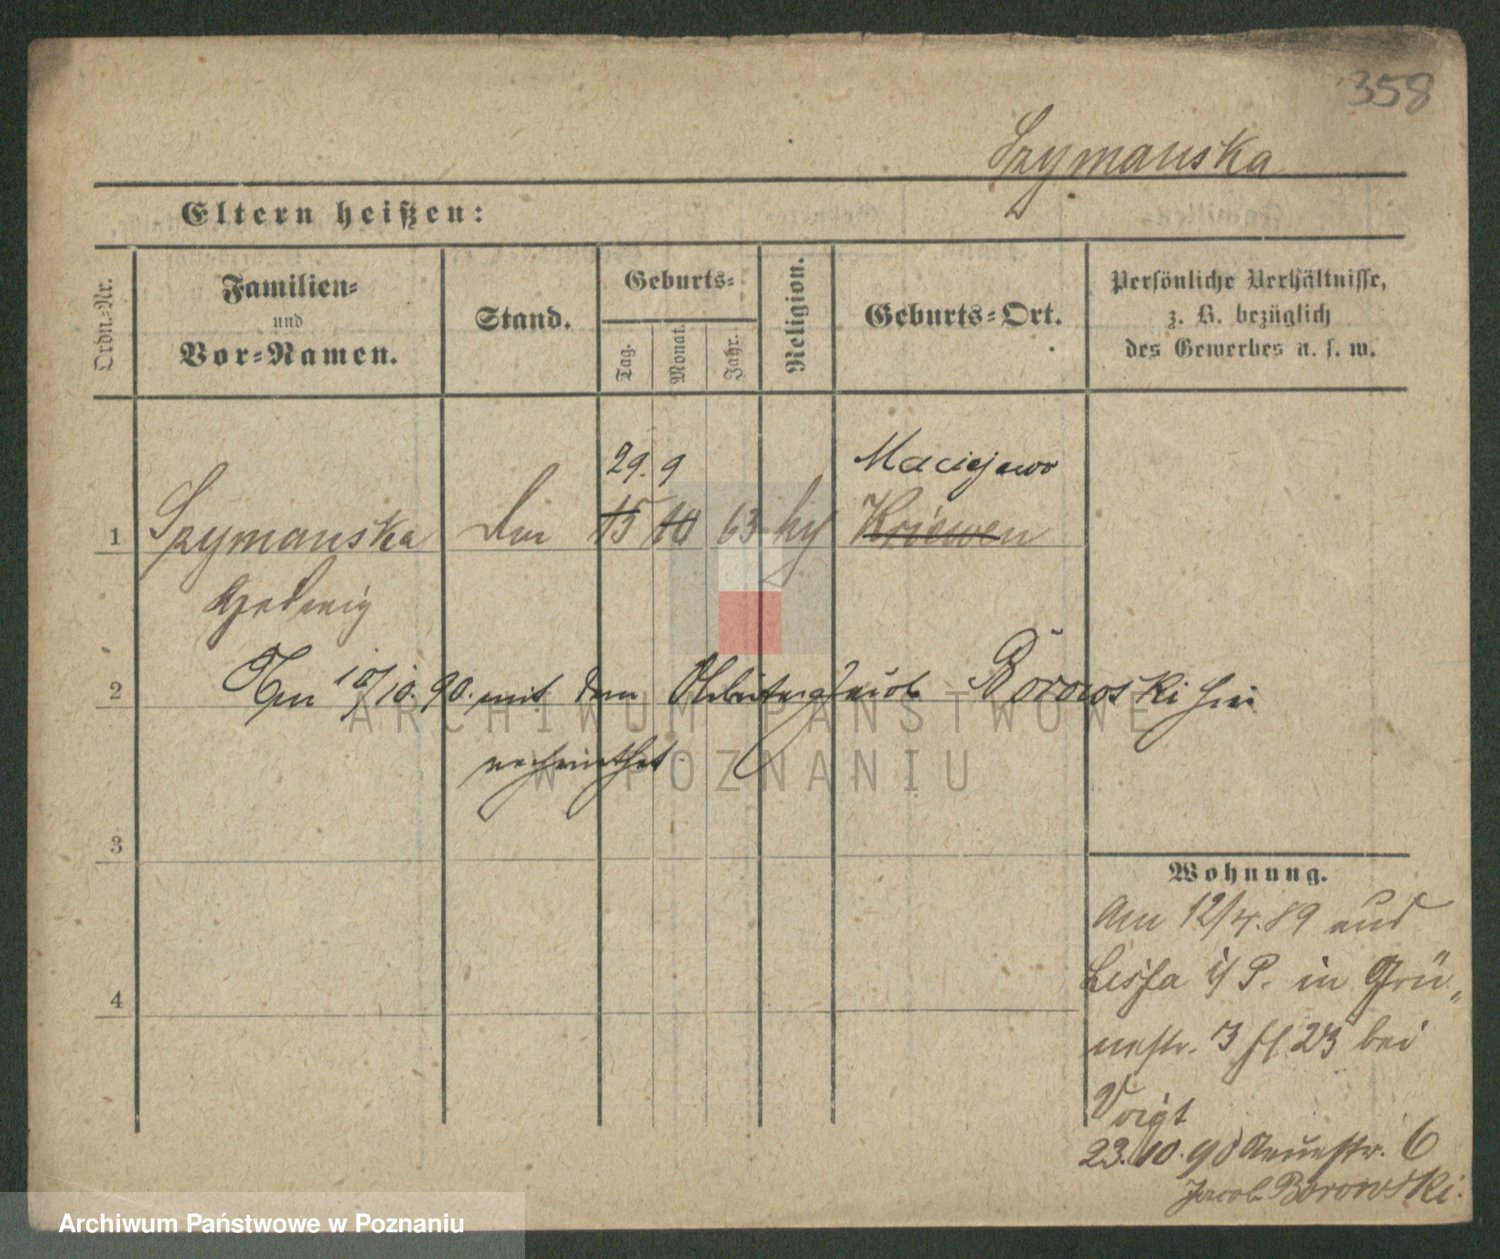 358
Szymanska
Eltern heißen:
Ordn.-Nr.
Familien-
und
Vor-Namen.
Stand.
Geburts-
Tag.
Monat.
Jahr.
Religion.
Geburts-Ort.
Persönliche Verhältnisse,
z. B. bezüglich
des Gewerbes u. s. w.
29. 9 Maciejewo
1 Szymanska 15 10 63 Kriewen
Hedwig
2 Am 10/10. 90. mit dem Arbeiter Jacob Borowski hier
verheirathet
3
4
Wohnung.
Am 12/4. 89 aus
Lissa i/P. in Grü„
nestr. 3 bei
Voigt
23.10.90 Neuestr. 6
Jacob Borowski.
ARCHIWUM PAŃSTWOWE
W POZNANIU
Archiwum Państwowe w Poznaniu